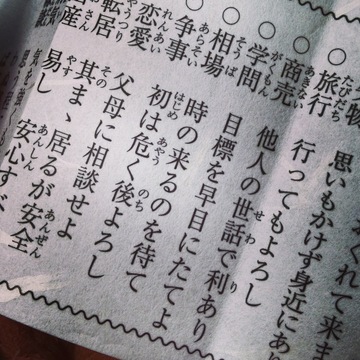 れて来ま
物 思いもかけず身近にあり
旅行 行ってもよろし
商売 他人の世話で利あり
学問 目標を早目にたてよ
相場 時の来るのを待て
争事 初は危く後よろし
恋愛 父母に相談せよ
転居 其まゝ居るが安全
産 易し 安心すべ